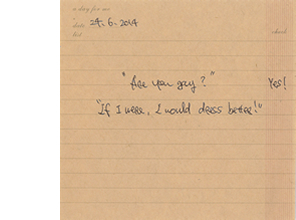 a day for me
date 24.6.2014
list check
"Are you gay?" Yes!
"If I were, I would dress better!"